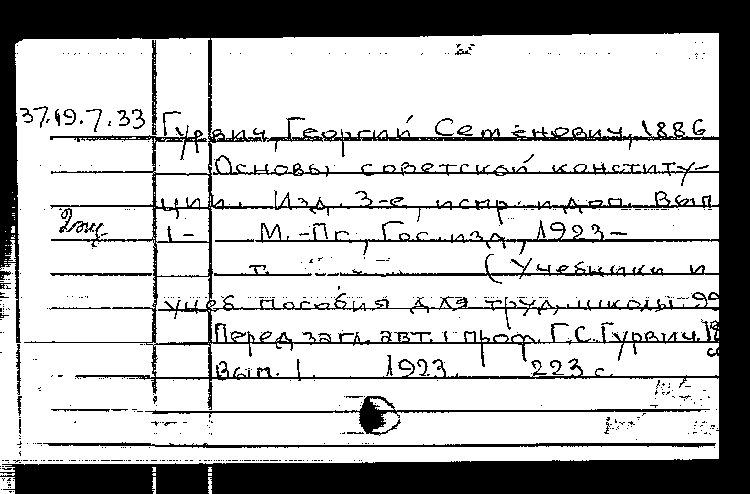 37.19.7.33 Гурвич, Георгий Семенович, 1886
Основы советской конститу-
ции. Изд. 3-е, испр. и доп. Вып
2 экз 1- М.-Пг., Гос. изд, 1923-
т. (Учебники и
учеб. пособия для труд. школы 99
Перед загл. авт.: проф. Г.С. Гурвич.
Вып. 1. 1923. 223 с.